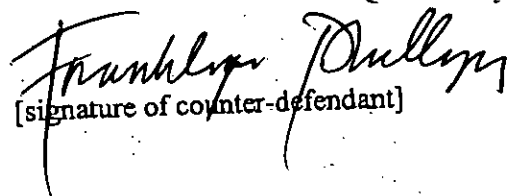 Franklyn Phillips
[signature of counter-defendant]